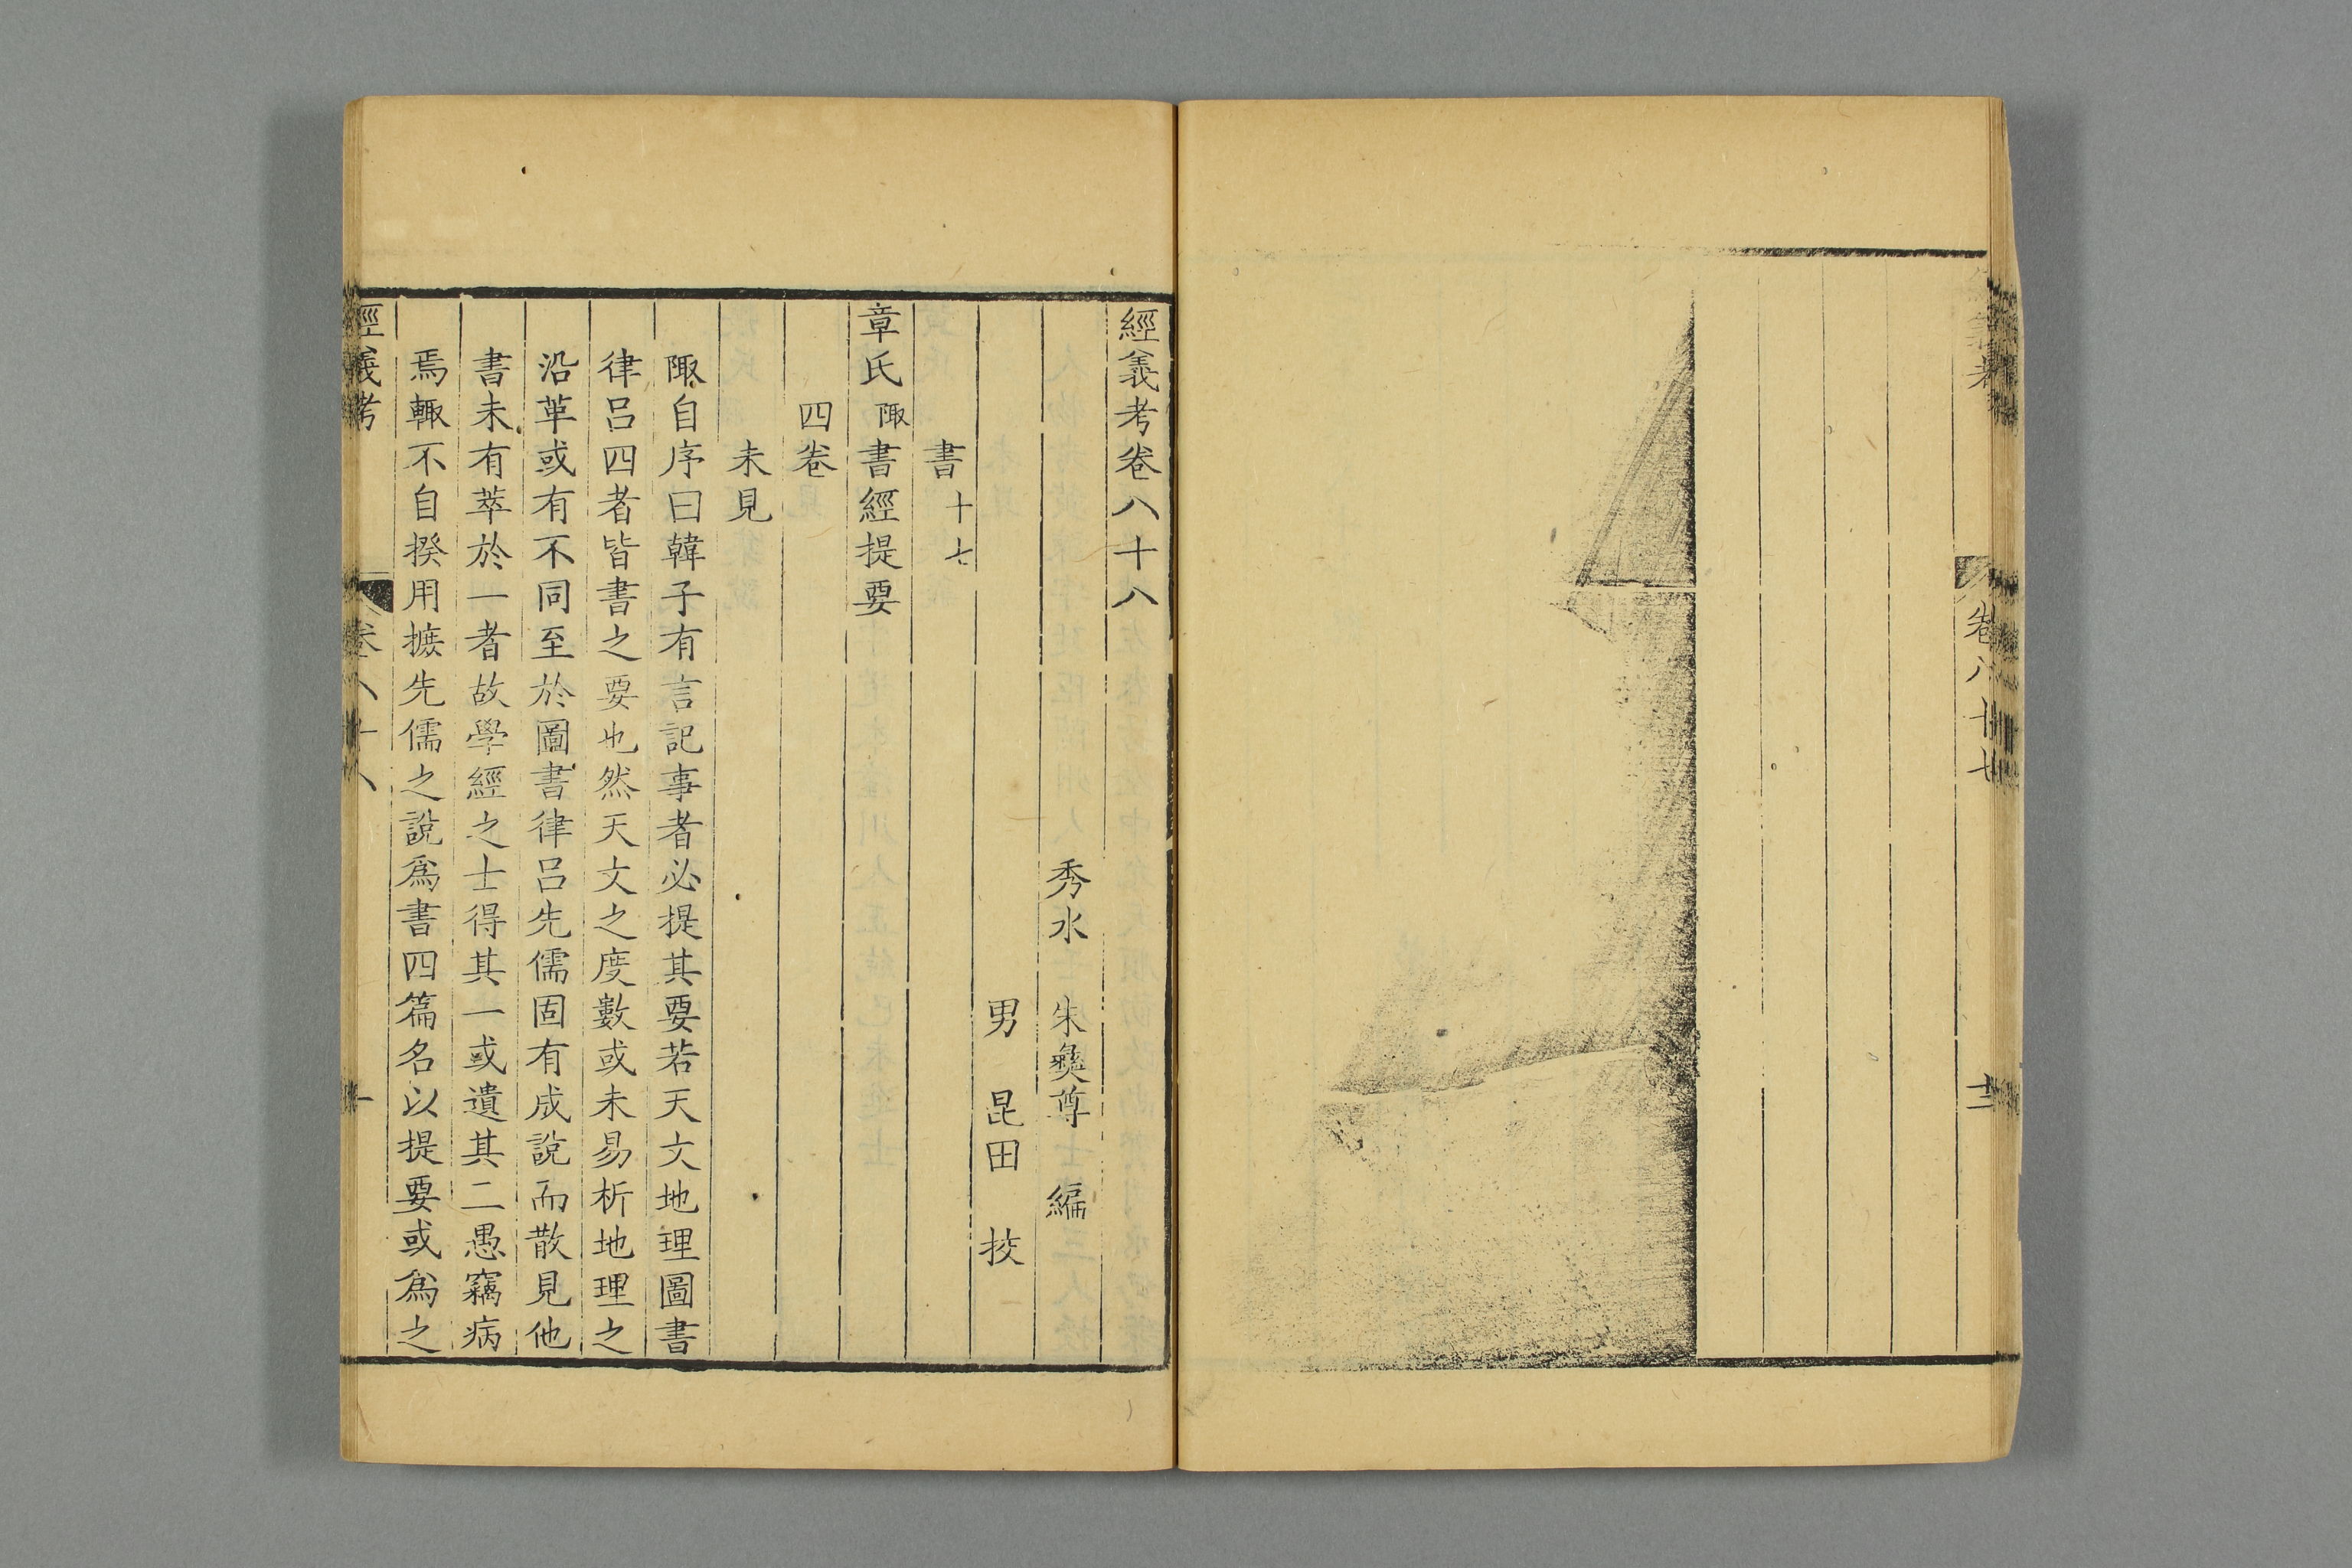 經義考
卷八十七
十二
經義考卷八十八
秀水 朱彝尊 編
男 昆田 挍
書十七
章氏陬書經提要
四卷
未見
陬自序曰韓子有言記事者必提其要若天文地理圖書
律呂四者皆書之要也然天文之度數或未易析地理之
沿革或有不同至於圖書律呂先儒固有成說而散見他
書未有萃於一者故學經之士得其一或遺其二愚竊病
焉輙不自揆用摭先儒之說爲書四篇名以提要或爲之
經義考
卷八十八
一